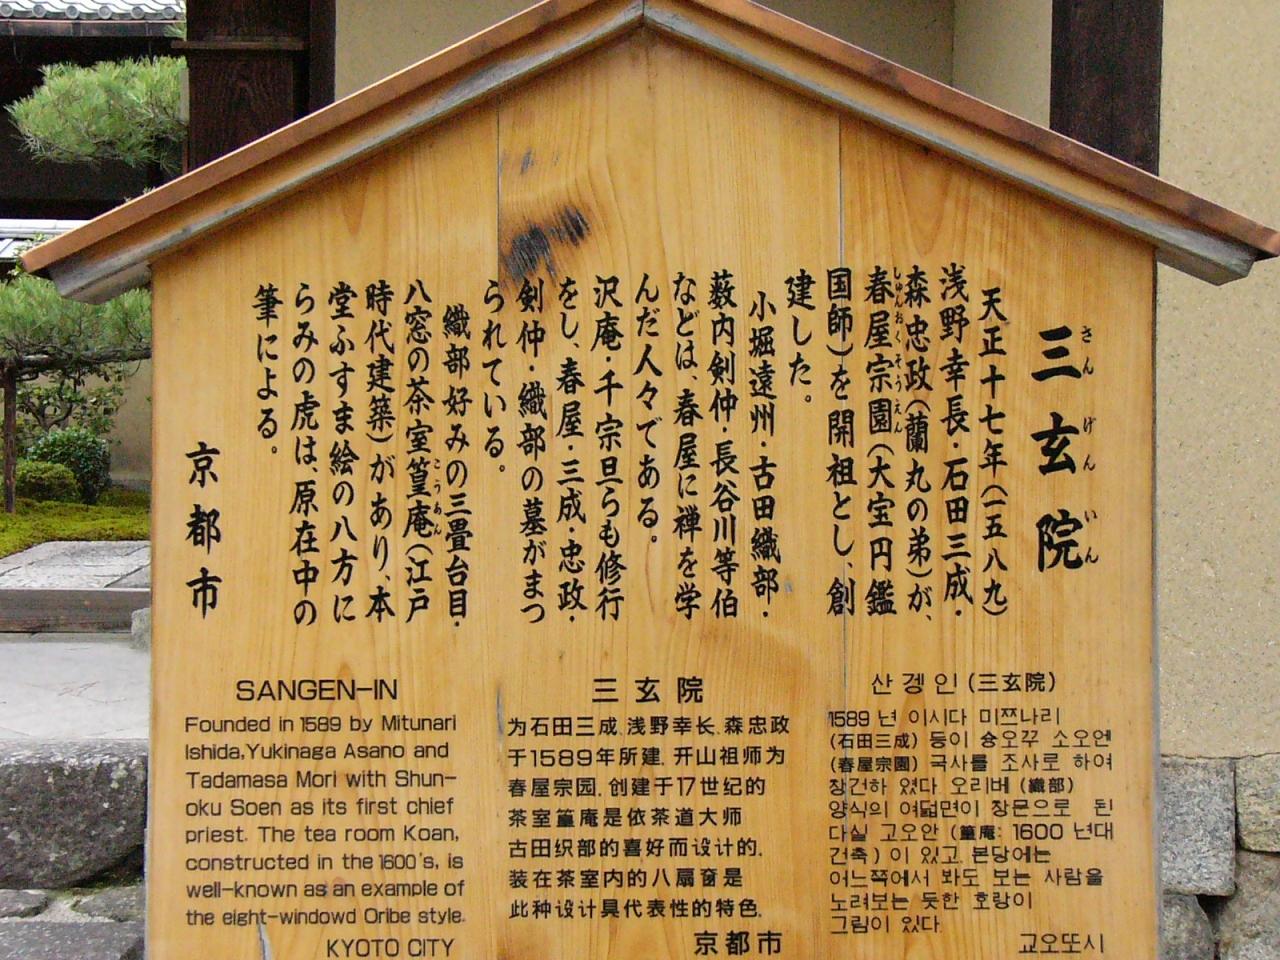 三玄院
さんげんいん
天正十七年(一五八九)
浅野幸長・石田三成・
森忠政(蘭丸の弟)が、
春屋宗園(大宝円鑑
しゅんおくそうえん
国師)を開祖とし、創
建した。
小堀遠州・古田織部・
薮内剣仲・長谷川等伯
などは、春屋に禅を学
んだ人々である。
沢庵・千宗旦らも修行
をし、春屋・三成・忠政・
剣仲・織部の墓がまつ
られている。
織部好みの三畳台目・
八窓の茶室篁庵(江戸
こうあん
時代建築)があり、本
堂ふすま絵の八方に
らみの虎は、原在中の
筆による。
京都市
SANGEN-IN
Founded in 1589 by Mitunari
Ishida,Yukinaga Asano and
Tadamasa Mori with Shun-
oku Soen as its first chief
priest. The tea room Koan,
constructed in the 1600's, is
well-known as an example of
the eight-windowd Oribe style.
KYOTO CITY
三玄院
为石田三成.浅野幸长.森忠政
于1589年所建.开山祖师为
春屋宗园.创建于17世纪的
茶室篁庵是依茶道大师
古田织部的喜好而设计的.
装在茶室内的八扇窗是
此种设计具代表性的特色.
京都市
산겡인(三玄院)
1589년 이시다 미쯔나리
(石田三成) 등이 슝오꾸 소오엔
(春屋宗園) 국사를 조사로 하여
창건하 였다. 오리베 (織部)
양식의 여덟면이 창문으로 된
다실 고오안 (篁庵: 1600 년대
건축) 이 있고. 본당에는
어느쪽에서 봐도 보는 사람을
노려보는 듯한 호랑이
그림이 있다.
교오또시